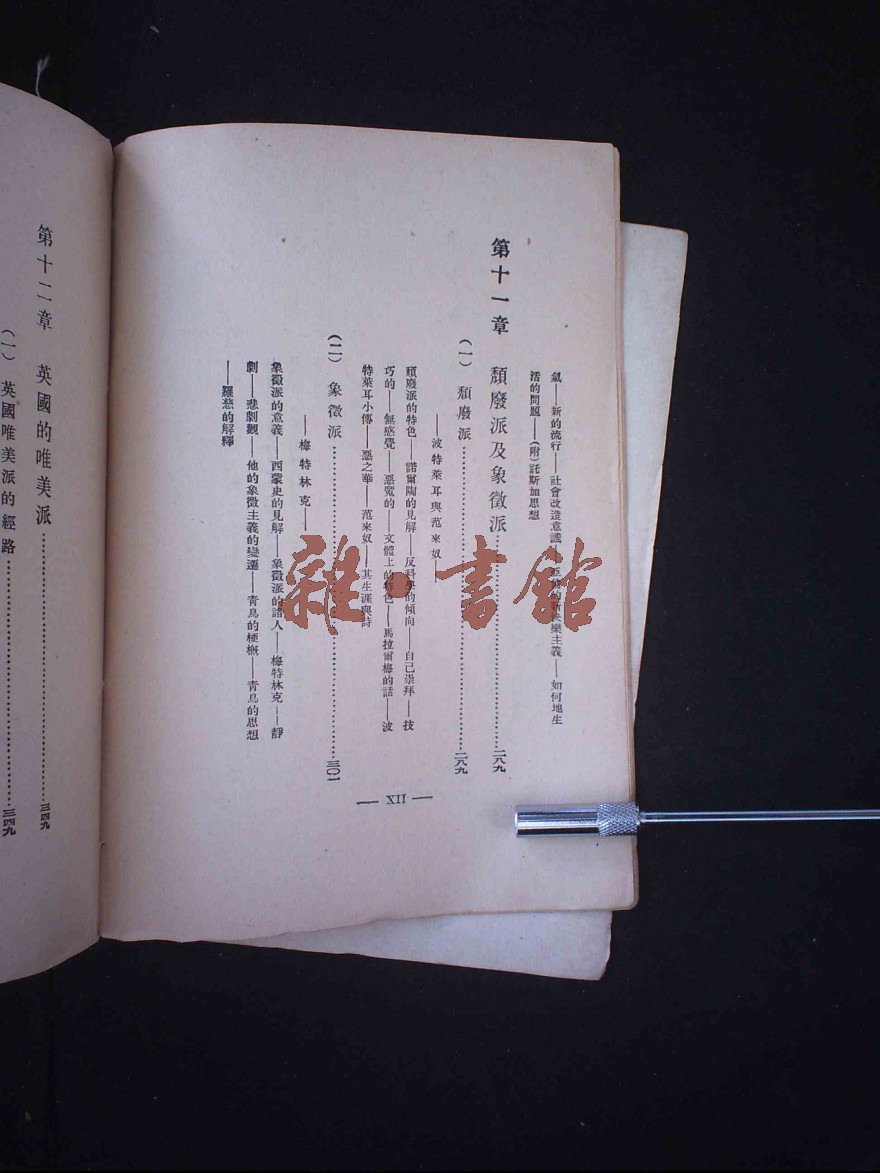 氣——新的流行——社會改造意識——王爾德的新快樂主義——如何地生
活的問題——(附)託斯加思想
第十一章 頹廢派及象徵派……二八九
(一) 頹廢派……二八九
——波特萊耳與范來奴——
頹廢派的特色——諾爾陶的見解——反科學的傾向——自己崇拜——技
巧的——無感覺——惡魔的——文體上的特色——馬拉爾梅的話——波
特萊耳小傳——惡之華——范來奴——其生涯與詩
(二) 象徵派……三〇一
——梅特林克——
象徵派的意義——西蒙史的見解——象徵派的諸人——梅特林克——靜
劇——悲劇觀——他的象徵主義的變遷——青鳥的梗概——青鳥的思想
——羅慈的解釋
— XII —
第十二章 英國的唯美派……三四九
(一) 英國唯美派的經路……三四九
雜·書館